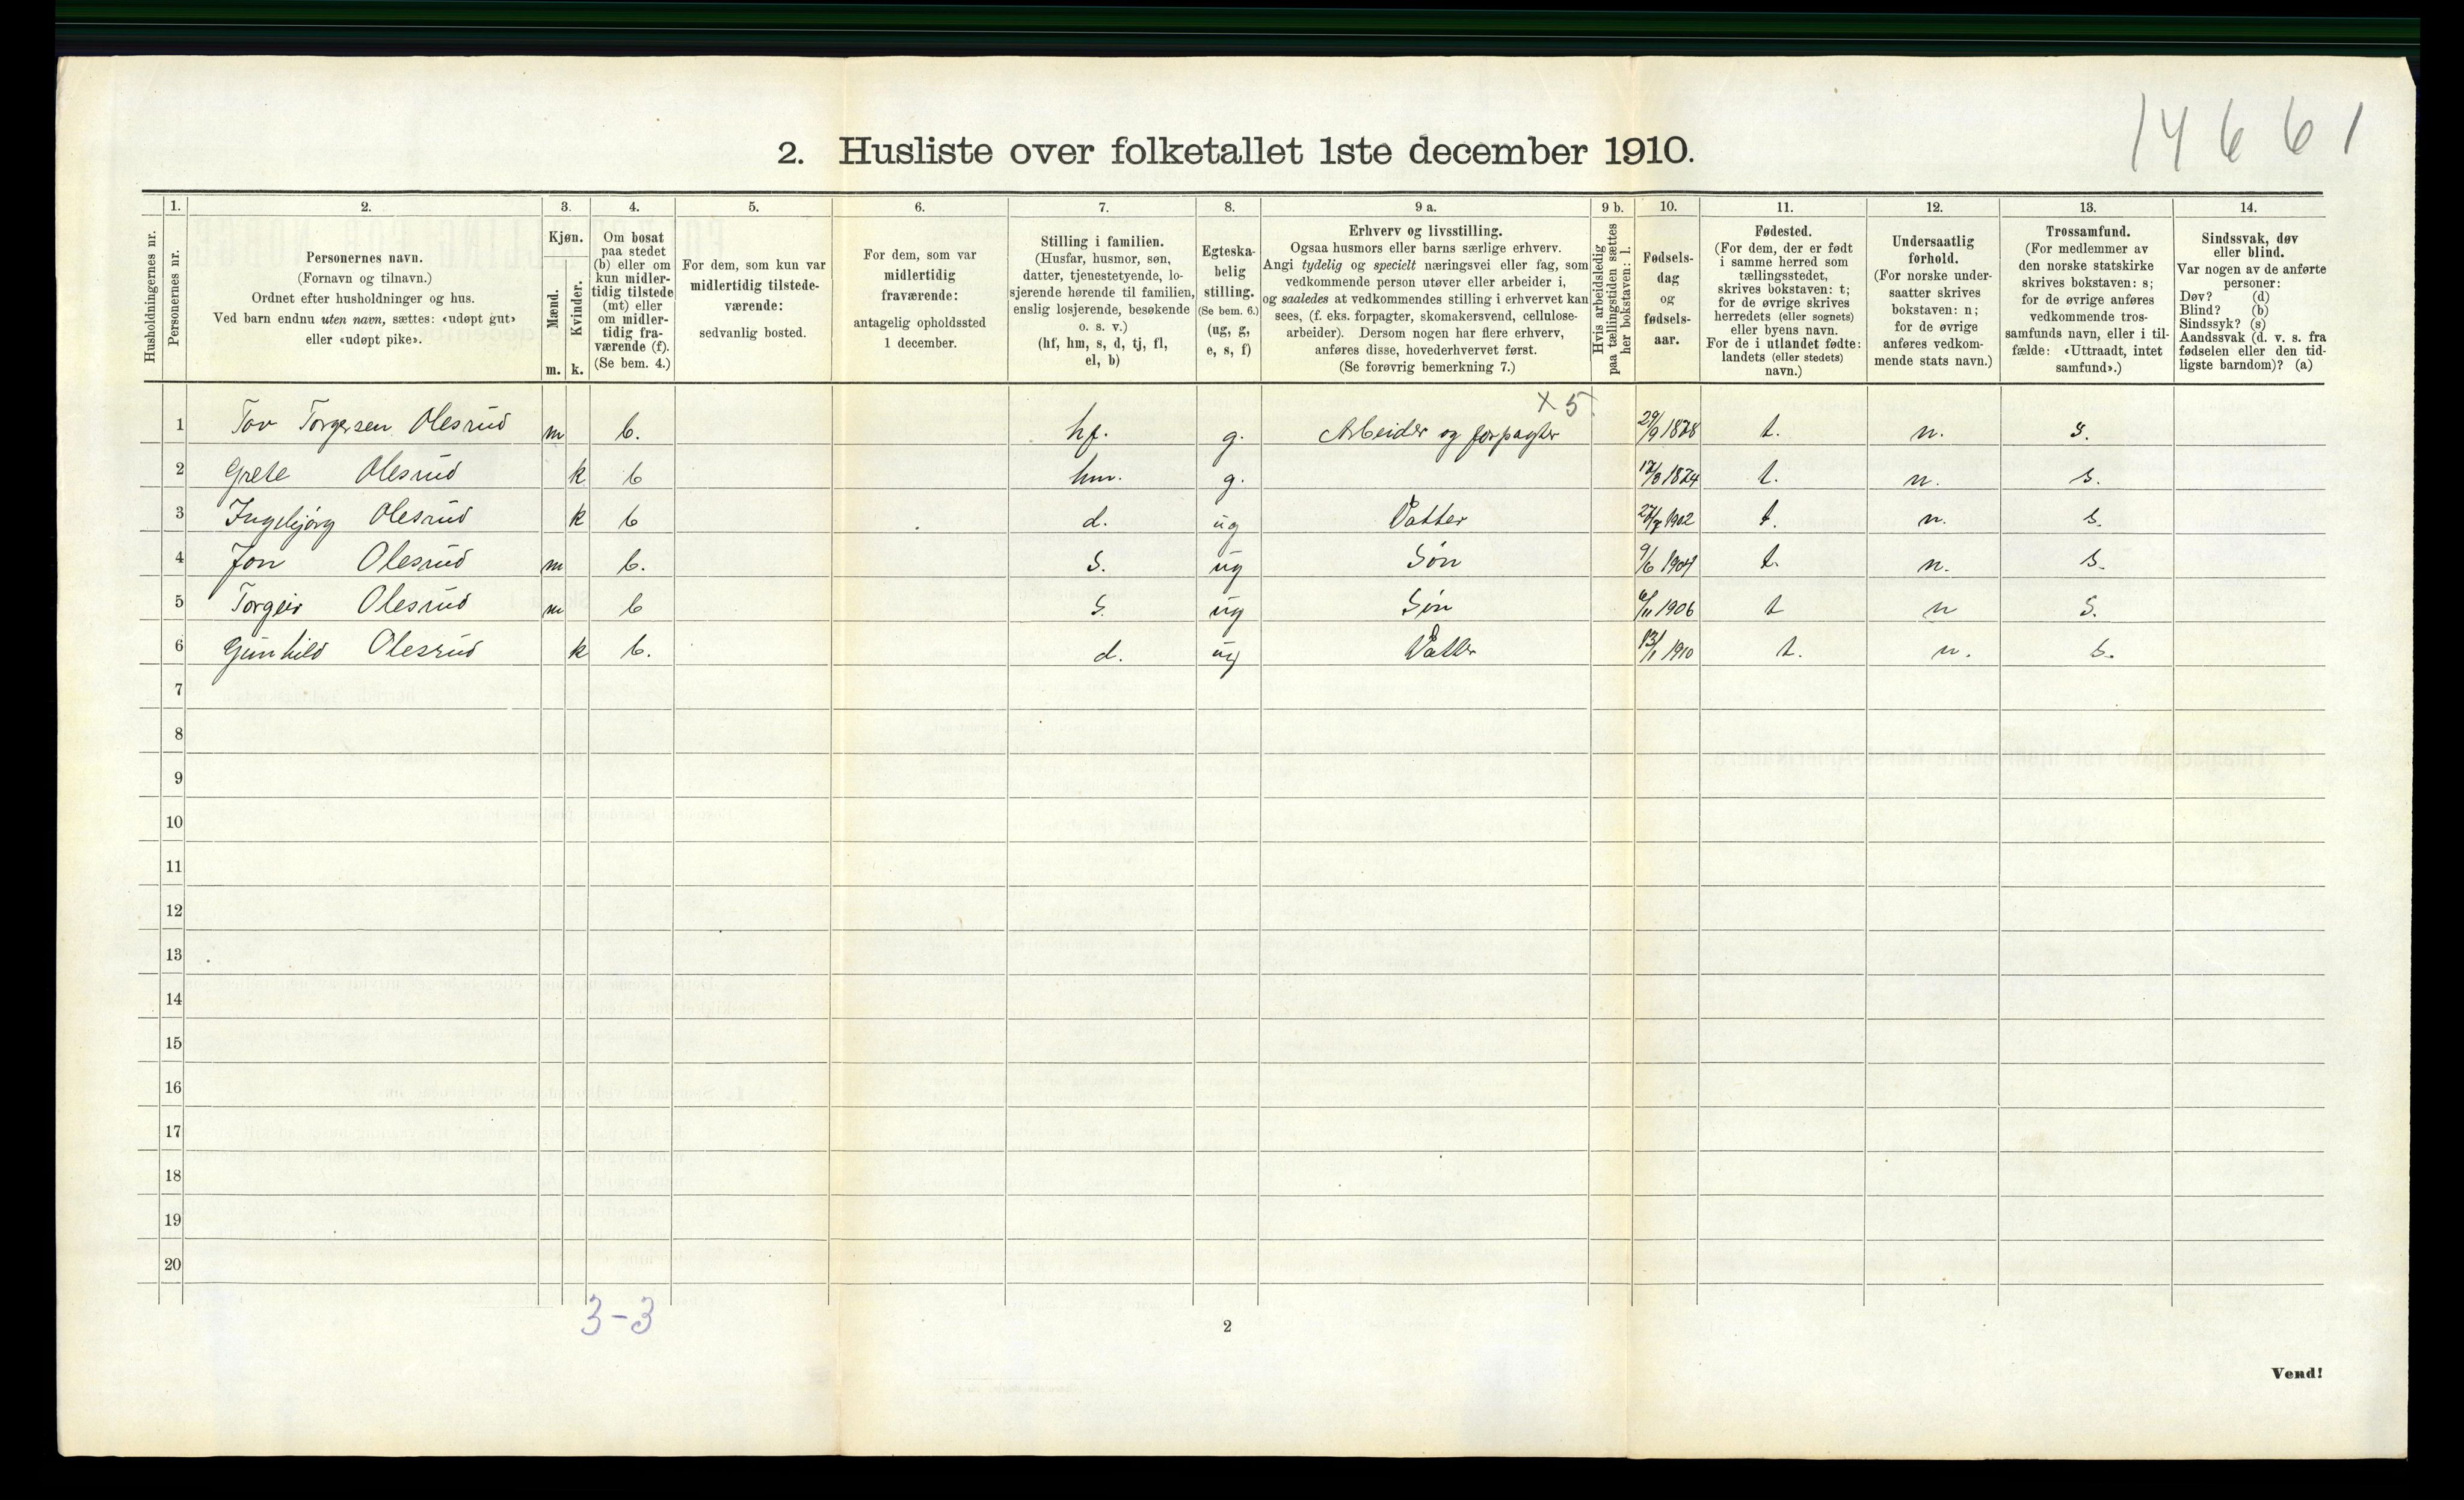 14661
2. Husliste over folketallet 1ste december 1910.
1. 2. 3. 4. 5. 6. 7. 8. 9 a. 9 b. 10. 11. 12. 13. 14.
Husholdningernes nr.
Personernes nr.
Personernes navn.
(Fornavn og tilnavn.)
Ordnet efter husholdninger og hus.
Ved barn endnu uten navn, sættes: «udøpt gut»
eller «udøpt pike».
Kjøn.
Mænd.
Kvinder.
m. k.
Om bosat
paa stedet
(b) eller om
kun midler-
tidig tilstede
(mt) eller
om midler-
tidig fra-
værende (f).
(Se bem. 4.)
For dem, som kun var
midlertidig tilstede-
værende:
sedvanlig bosted.
For dem, som var
midlertidig
fraværende:
antagelig opholdssted
1 december.
Stilling i familien.
(Husfar, husmor, søn,
datter, tjenestetyende, lo-
sjerende hørende til familien,
enslig losjerende, besøkende
o. s. v.)
(hf, hm, s, d, tj, fl,
el, b)
Egteska-
belig
stilling.
(Se bem. 6.)
(ug, g,
e, s, f)
Erhverv og livsstilling.
Ogsaa husmors eller barns særlige erhverv.
Angi tydelig og specielt næringsvei eller fag, som
vedkommende person utøver eller arbeider i,
og saaledes at vedkommendes stilling i erhvervet kan
sees, (f. eks. forpagter, skomakersvend, cellulose-
arbeider). Dersom nogen har flere erhverv,
anføres disse, hovederhvervet først.
(Se forøvrig bemerkning 7.)
Hvis arbeidsledig
paa tællingstiden sættes
her bokstaven: l.
Fødsels-
dag
og
fødsels-
aar.
Fødested.
(For dem, der er født
i samme herred som
tællingsstedet,
skrives bokstaven: t;
for de øvrige skrives
herredets (eller sognets)
eller byens navn.
For de i utlandet fødte:
landets (eller stedets)
navn.)
Undersaatlig
forhold.
(For norske under-
saatter skrives
bokstaven: n;
for de øvrige
anføres vedkom-
mende stats navn.)
Trossamfund.
(For medlemmer av
den norske statskirke
skrives bokstaven: s;
for de øvrige anføres
vedkommende tros-
samfunds navn, eller i til-
fælde: «Uttraadt, intet
samfund».)
Sindssvak, døv
eller blind.
Var nogen av de anførte
personer:
Døv? (d)
Blind? (b)
Sindssyk? (s)
Aandssvak (d. v. s. fra
fødselen eller den tid-
ligste barndom)? (a)
x 5
1 Tov Torgersen Olesrud m b. hf. g. Arbeider og forpagter 29/9 1878 t. n. s.
2 Grete Olesrud k b hm. g. 1874 t. n. s.
3 Ingebjörg Olesrud k b d. ug Datter 1902 t. n. s.
4 Jon Olesrud m b. s. ug Sön 9/6 1904 t. n. s.
5 Torgeir Olesrud m b s. ug Sön 1906 t n s.
6 Gunhild Olesrud k b. d. ug Datter 13/1 1910 t. n. s.
7
8
9
10
11
12
13
14
15
16
17
18
19
20
3-3
2
Vend!